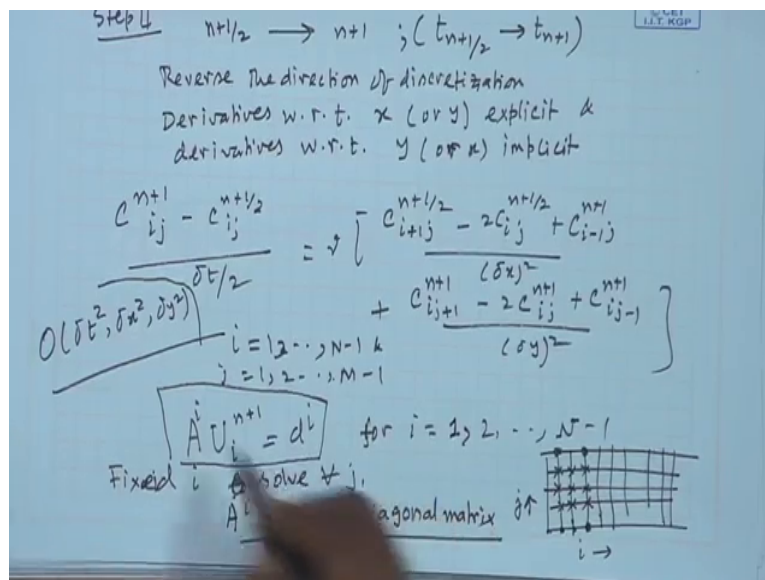 Step II
© CET
I.I.T. KGP
n+1/2 → n+1 ; (t_{n+1/2} → t_{n+1})
Reverse the direction of discretization
Derivatives w.r.t. x (or y) explicit &
derivatives w.r.t. y (or x) implicit
(C_{ij}^{n+1} - C_{ij}^{n+1/2}) / (δt/2) = ν [ (C_{i+1j}^{n+1/2} - 2C_{ij}^{n+1/2} + C_{i-1j}^{n+1}) / (δx)^2
+ (C_{ij+1}^{n+1} - 2C_{ij}^{n+1} + C_{ij-1}^{n+1}) / (δy)^2 ]
O(δt^2, δx^2, δy^2)
i = 1, 2 ··, N-1 &
j = 1, 2 ··, M-1
A^i U_i^{n+1} = d^i for i = 1, 2, ··, N-1
Fixed i solve ∀ j,
A^i diagonal matrix
j↑
i →